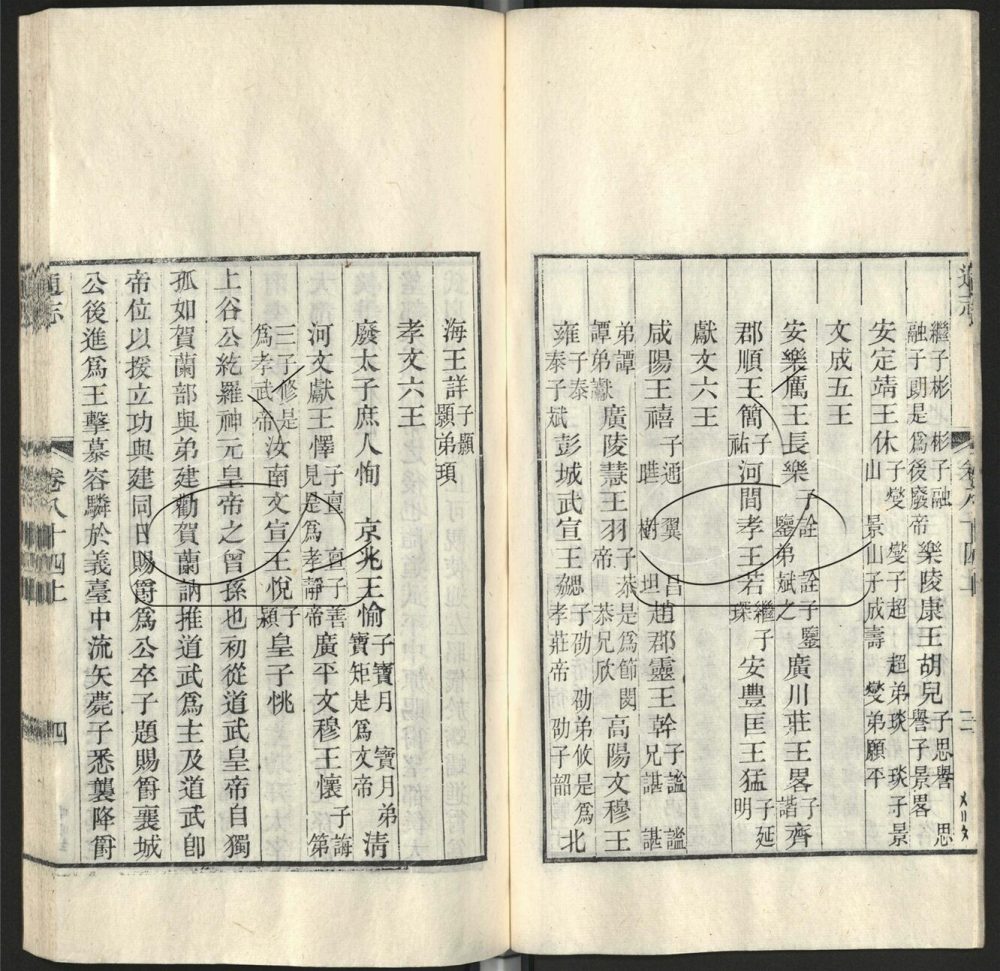 繼子彬 彬子融 融子朗是爲後廢帝 樂陵康王胡兒 子思譽 思譽子景畧
安定靖王休 子燮 燮子超 超弟琰 琰子景山 景山子成壽 燮弟願平
文成五王
安樂厲王長樂 子詮 詮子鑒 鑒弟斌之 廣川莊王畧 子諧 齊
郡順王簡 子祐 河間孝王若 繼子琛 安豐匡王猛 子延明
獻文六王
咸陽王禧 子通 翼 昌 曄 樹 坦 趙郡靈王幹 子謐 謐兄諶 諶
弟譚 譚弟讞 廣陵慧王羽 子恭是爲節閔帝 恭兄欣 高陽文穆王
雍 子泰 泰子斌 彭城武宣王勰 子劭 劭弟攸是爲孝莊帝 劭子韶 北
海王詳 子顥 顥弟頊
孝文六王
廢太子庶人恂 京兆王愉 子寶月 寶月弟寶矩是爲文帝 清
河文獻王懌 子亶 亶子善見是爲孝靜帝 廣平文穆王懷 子誨 第
三子修是爲孝武帝 汝南文宣王悅 子潁 皇子恌
上谷公紇羅神元皇帝之曾孫也初從道武皇帝自獨
孤如賀蘭部與弟建勸賀蘭訥推道武爲主及道武卽
帝位以援立功與建同日賜爵爲公卒子題賜爵襄城
公後進爲王擊慕容驎於義臺中流矢薨子悉襲降爵
通志 卷八十四上 四